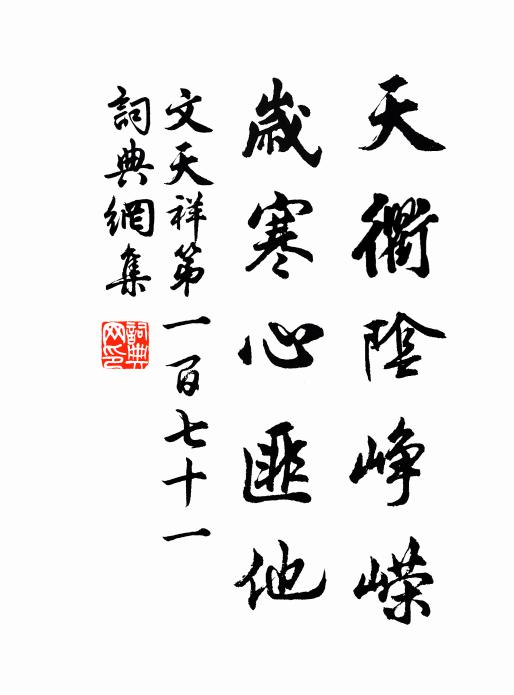 天衢陰崢嶸
歲寒心匪他
文天祥第一百七十一
詞典網集
詞典網印